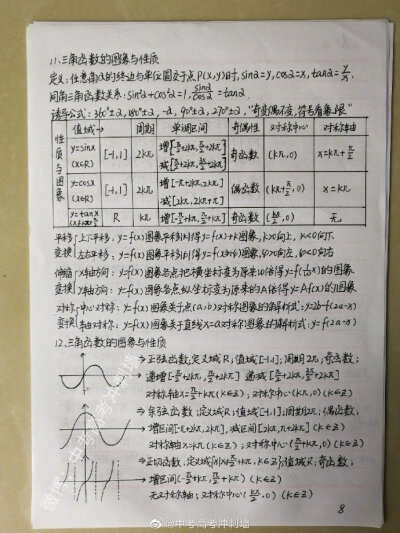 11.三角函数的图象与性质
定义:任意角α的终边与单位圆交于点P(x,y)时,sinα=y,cosα=x,tanα=y/x.
同角三角函数关系:sin²α+cos²α=1,sinα/cosα=tanα
诱导公式:360°±α,180°±α,-α,90°±α,270°±α,"奇变偶不变,符号看象限"
性质与图象 值域 周期 单调区间 奇偶性 对称中心 对称轴
y=sinx (x∈R) [-1,1] 2kπ 增[-π/2+2kπ,π/2+2kπ] 减[π/2+2kπ,3π/2+2kπ] 奇函数 (kπ,0) x=kπ+π/2
y=cosx (x∈R) [-1,1] 2kπ 增[-π+2kπ,2kπ] 减[2kπ,2kπ+π] 偶函数 (kπ+π/2,0) x=kπ
y=tanx R kπ 增(-π/2+kπ,π/2+kπ) 奇函数 (kπ/2,0) 无
平移变换 上下平移:y=f(x)图象平移|k|得y=f(x)+k图象,k>0向上,k<0向下.
左右平移:y=f(x)图象平移|φ|得y=f(x+φ)图象,φ>0向左,φ<0向右
伸缩变换 x轴方向:y=f(x)图象各点把横坐标变为原来ω倍得y=f(1/ω x)的图象
y轴方向:y=f(x)图象各点纵坐标变为原来的A倍得y=Af(x)的图象
对称变换 中心对称:y=f(x)图象关于点(a,b)对称图象的解析式:y=2b-f(2a-x)
轴对称:y=f(x)图象关于直线x=a对称图象的解析式:y=f(2a-x)
12.三角函数的图象与性质
→正弦函数:定义域R;值域[-1,1];周期2π;奇函数;
→递增[-π/2+2kπ,π/2+2kπ] 递减[π/2+2kπ,3π/2+2kπ]
对称轴x=π/2+kπ(k∈Z);对称中心(kπ,0)(k∈Z)
→余弦函数:定义域R;值域[-1,1];周期2π;偶函数;
→增区间[-π+2kπ,2kπ],减区间[2kπ,π+2kπ](k∈Z)
对称轴x=kπ(k∈Z);对称中心(π/2+kπ,0)(k∈Z)
→正切函数:定义域{x|x≠π/2+kπ,k∈Z};值域R;奇函数;
→增区间(-π/2+kπ,π/2+kπ)(k∈Z)
无对称轴;对称中心(kπ/2,0)(k∈Z)
8
微博:中考高考冲刺墙
@中考高考冲刺墙